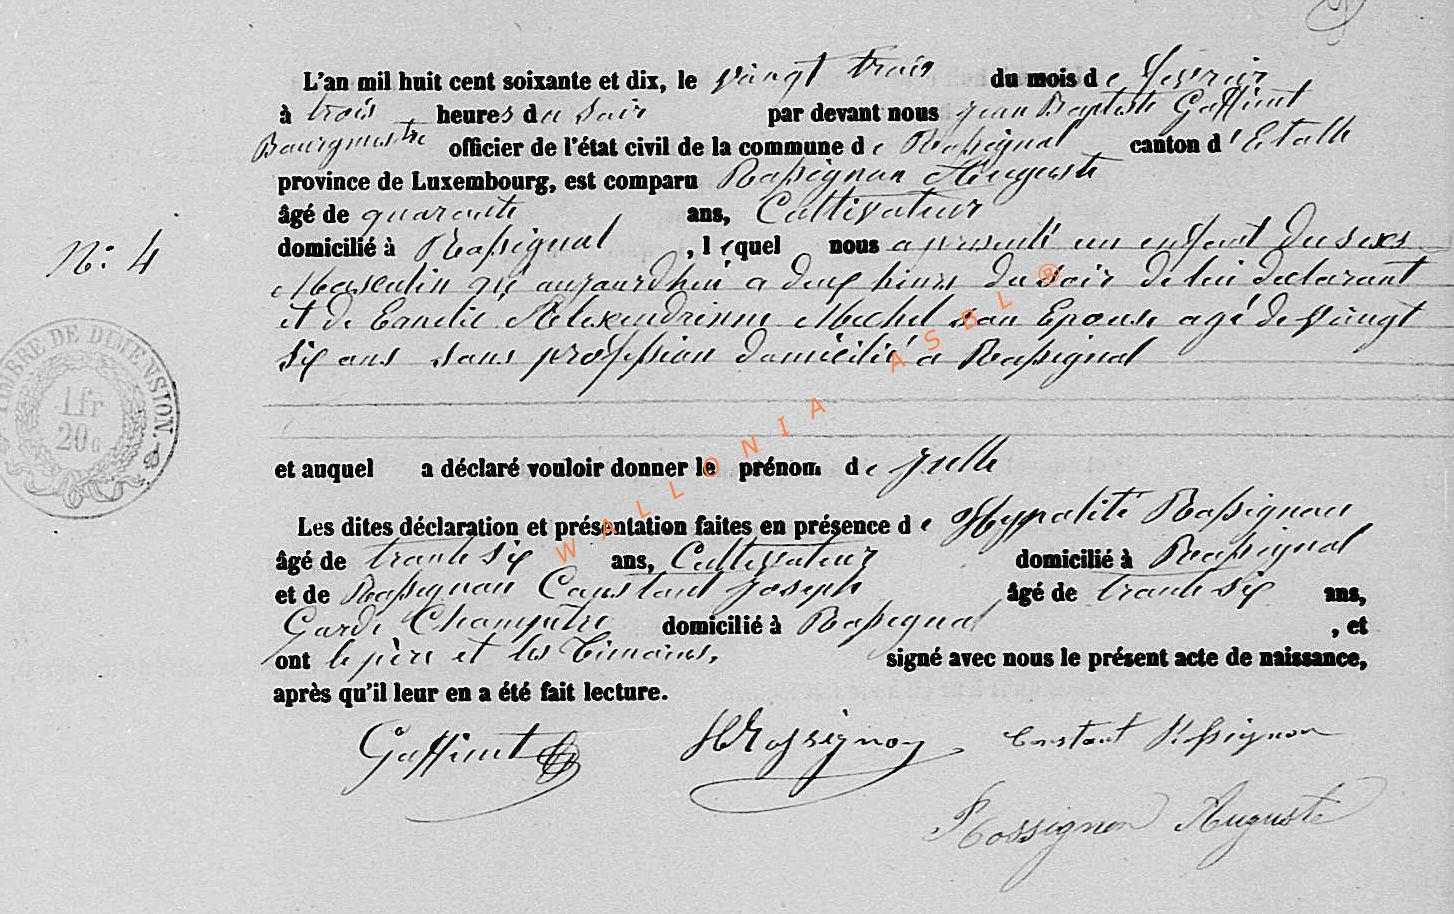 L'an mil huit cent soixante et dix, le vingt trois du mois de fevrier
à trois heures du soir par devant nous jean Baptiste Gaffinet
Bourgmestre officier de l'état civil de la commune de Rossignol canton d'Etalle
province de Luxembourg, est comparu Rossignon Auguste
âgé de quarante ans, Cultivateur
domicilié à Rossignol, lequel nous a presenté un enfant du sexe
N°: 4
Masculin né aujourdhui a deux heures du soir de lui declarant
et de Emelie Alexendrinne Michel son Epouse agé de vingt
six ans sans profession domicilié a Rossignol
TIMBRE DE DIMENSION.
1fr
20c
et auquel a déclaré vouloir donner le prénom de julle
Les dites déclaration et présentation faites en présence de Hyppolite Rossignon
âgé de trante six ans, Cultivateur domicilié à Rossignol
et de Rossignon Constant joseph âgé de trante six ans,
Garde Champetre domicilié à Rossignol, et
ont le père et les Temoins, signé avec nous le présent acte de naissance,
après qu'il leur en a été fait lecture.
Gaffinet HRossignon Constant Rossignon
Rossignon Auguste
WALLONIA ASBL ®